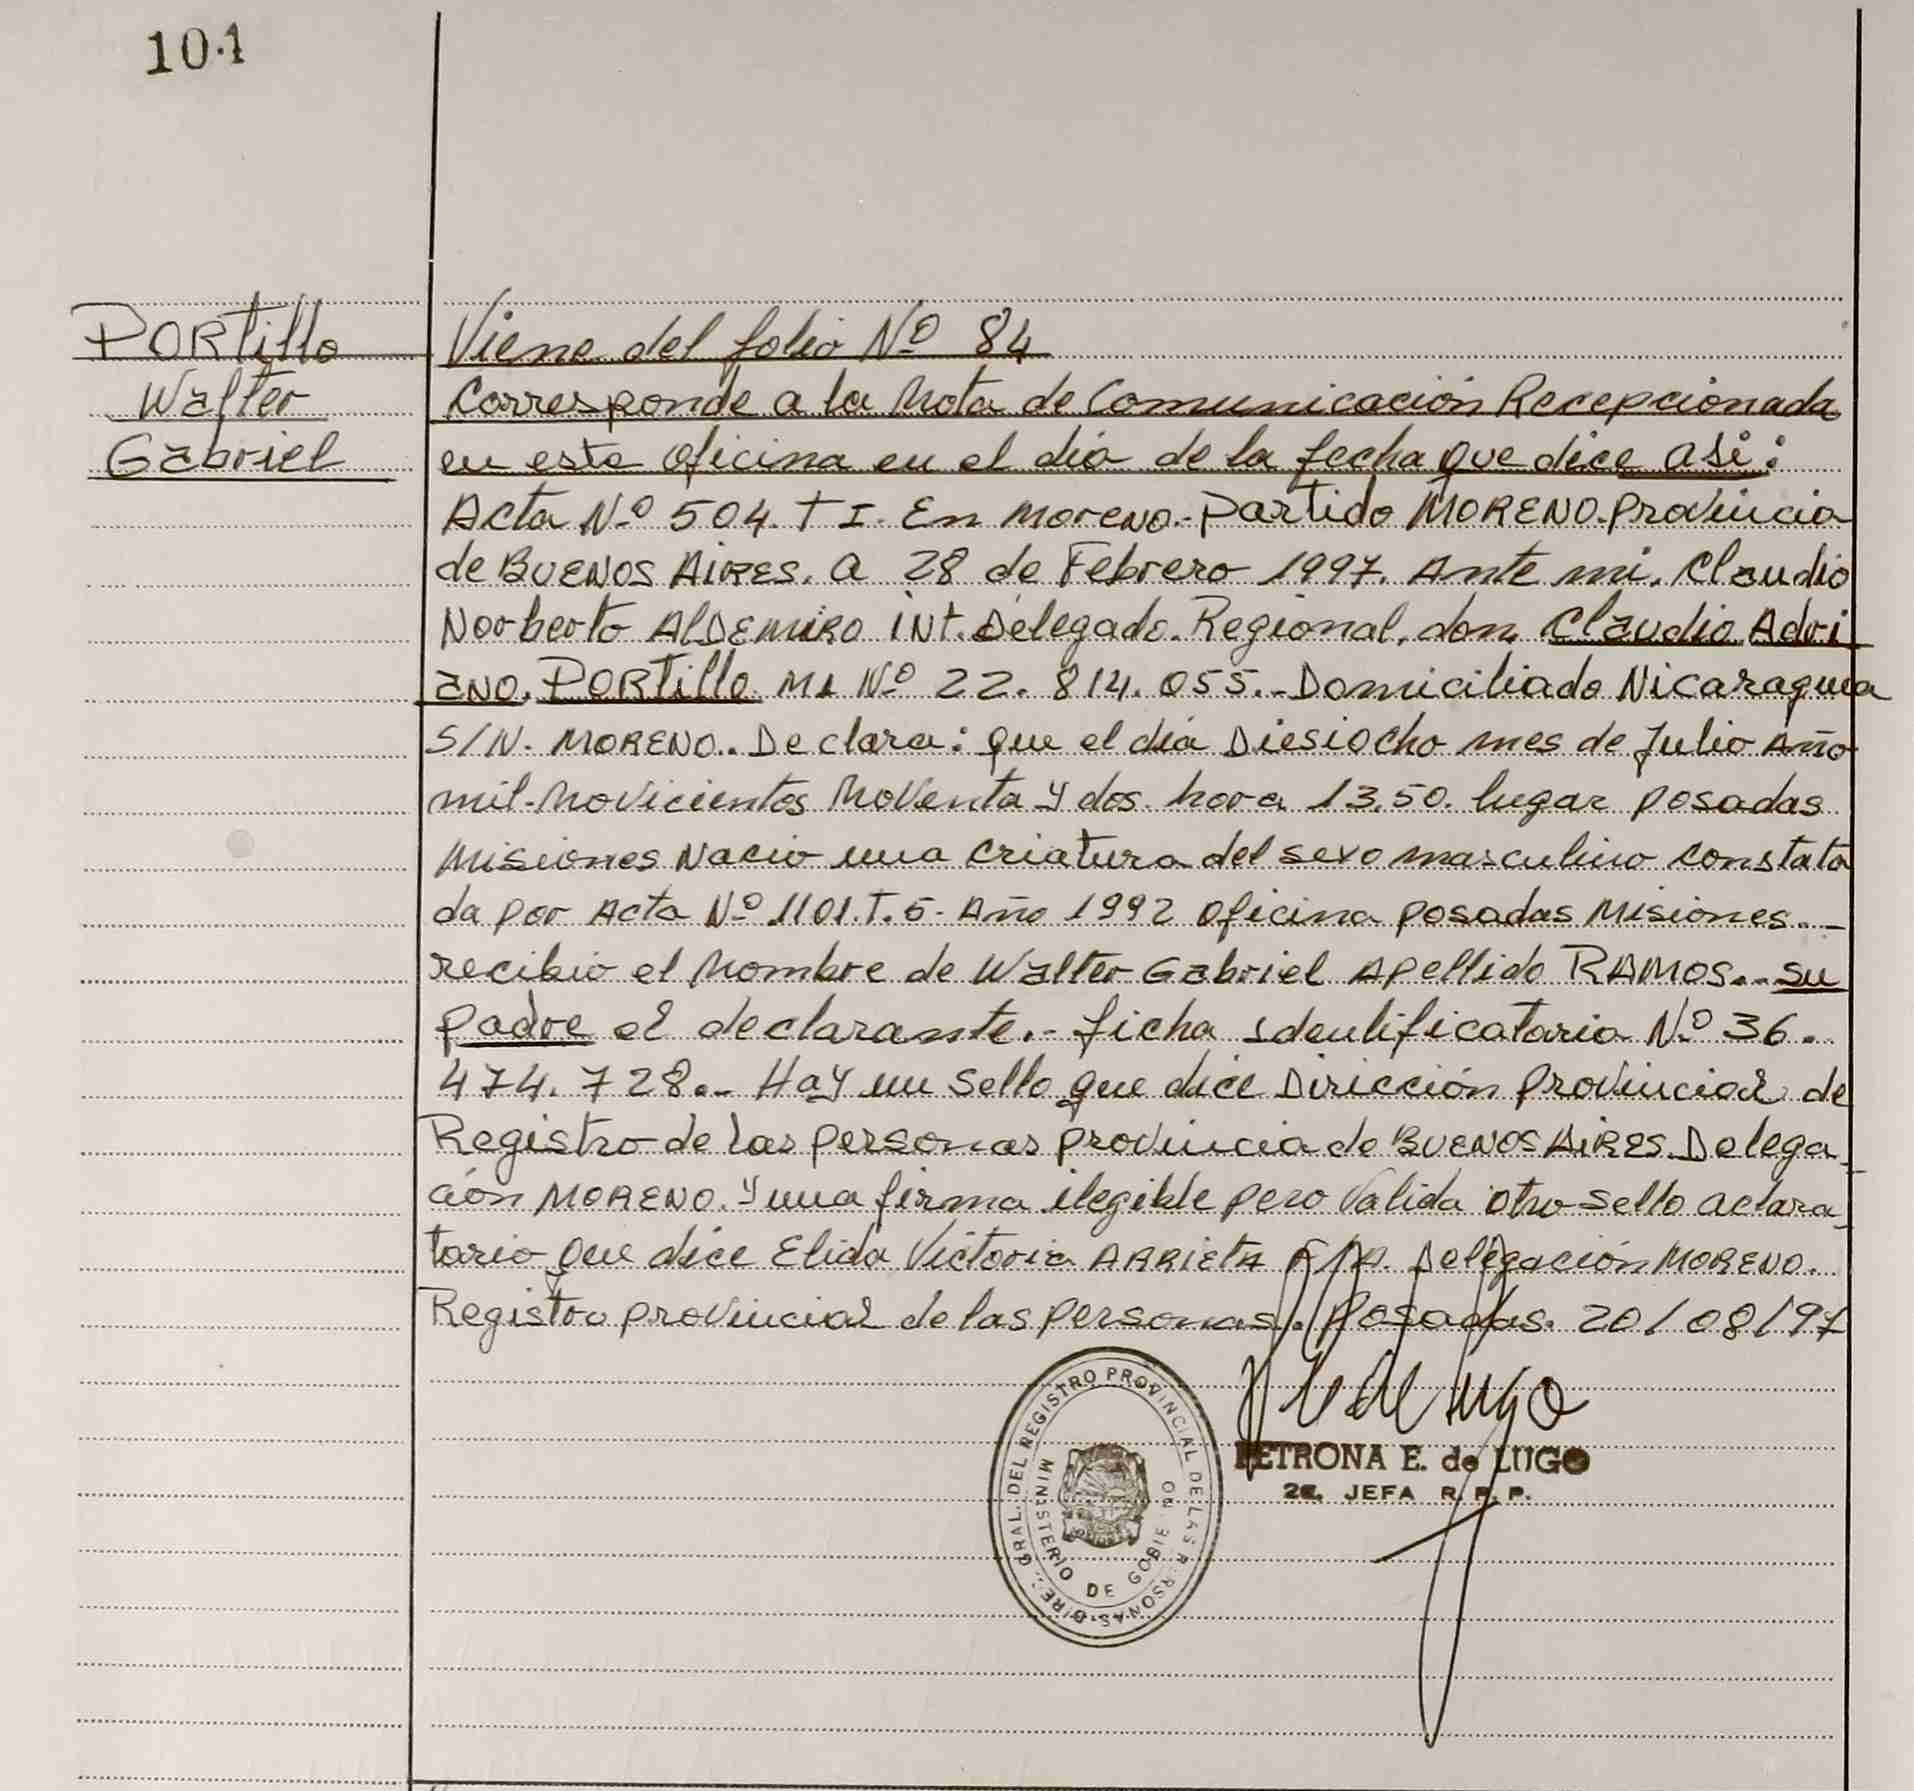 101
PORtillo
Walter
Gabriel
Viene del folio Nº 84
Corresponde a la Nota de Comunicación Recepcionada
en esta oficina en el día de la fecha que dice así:
Acta Nº 504. T I. En Moreno.- Partido MORENO. Provincia
de BUENOS AIRES. a 28 de Febrero 1997. Ante mi. Claudio
Norberto ALDEMIRO INt. Delegado. Regional, don Claudio Adri
ano. PORtillo MI Nº 22. 814. 055.- Domiciliado Nicaragua
S/N. MORENO.. Declara: que el día Diesiocho mes de Julio Año
mil. Novicientos Noventa y dos. hora 13.50. lugar posadas
Misiones Nacio una criatura del sexo masculino constata
da por Acta Nº 1101. T. 5. Año 1992 oficina posadas Misiones..-
recibio el Nombre de Walter Gabriel Apellido RAMOS.. su
padre el declarante.- ficha identificatoria Nº 36.
474. 728..- Hay un sello que dice Dirección provincial de
Registro de las personas provincia de BUENOS AIRES. Delega-
ción MORENO. y una firma ilegible pero valida otro sello aclara-
torio que dice Elida Victoria ARRIETA Delegación MORENO.
Registro provincial de las personas. Posadas. 20/08/97
PETRONA E. de LUGO
2a. JEFA R. P. P.
DIREC. GRAL. DEL REGISTRO PROVINCIAL DE LAS PERSONAS
MINISTERIO DE GOBIERNO